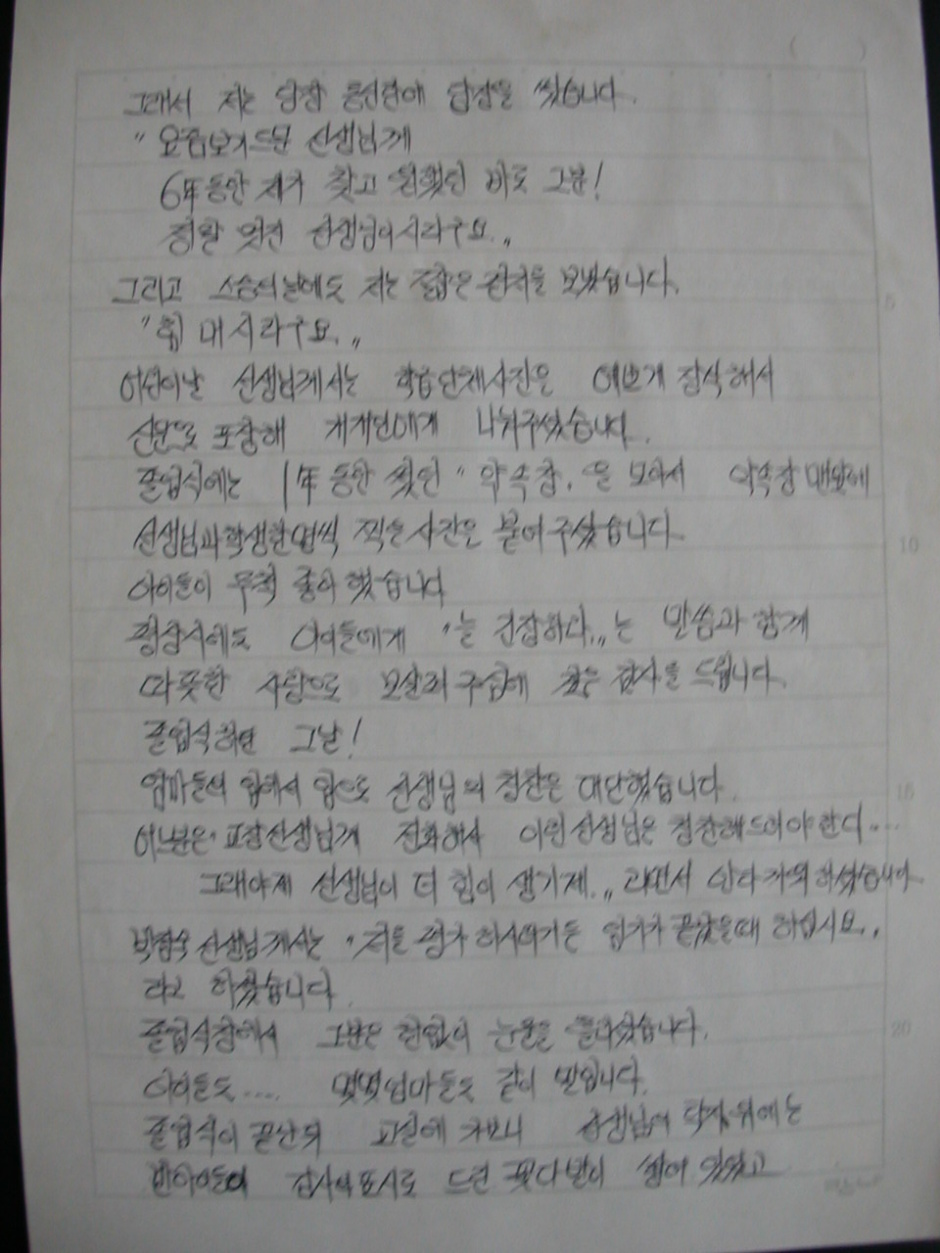 그래서 저는 당장 통신란에 답장을 썼습니다.
" 요즘보기드문 선생님께
6年동안 제가 찾고 원했던 바로 그분!
정말 멋진 선생님이시라구요. "
그리고 스승의날에도 저는 짧은 편지를 보냈습니다.
" 힘 내시라구요. "
어린이날 선생님께서는 학급단체사진은 예쁘게 장식해서
신문으로 포장해 개개인에게 나눠주셨습니다.
졸업식에는 1年 동안 썼던 " 약속장. "을 모아서 약속장 맨앞에
선생님과학생한명씩 찍은 사진은 붙여 주셨습니다.
아이들이 무척 좋아 했습니다
평상시에도 아이들에게 " 늘 긴장하라. " 는 말씀과 함께
따뜻한 사랑으로 보살펴 주심에 감사를 드립니다.
졸업식하던 그날!
엄마들의 입에서 입으로 선생님의 칭찬은 대단했습니다.
어느분은 " 교장선생님께 전화해서 이런 선생님은 칭찬해드려야 한다....
그래야제 선생님이 더 힘이 생기제. " 라면서 하셨습니다.
선생님께서는 " 저를 평가 하시려거든 임기가 끝났을때 하십시요. "
라고 하셨습니다.
졸업식장에서 그분은 한없이 눈물을 흘리셨습니다.
아이들도.... 몇몇엄마들도 같이 말입니다.
졸업식이 끝난뒤 교실에 가보니 선생님의 탁자위에는
반아이들이 감사의표시로 드린 꽃다발이 쌓여 있었고